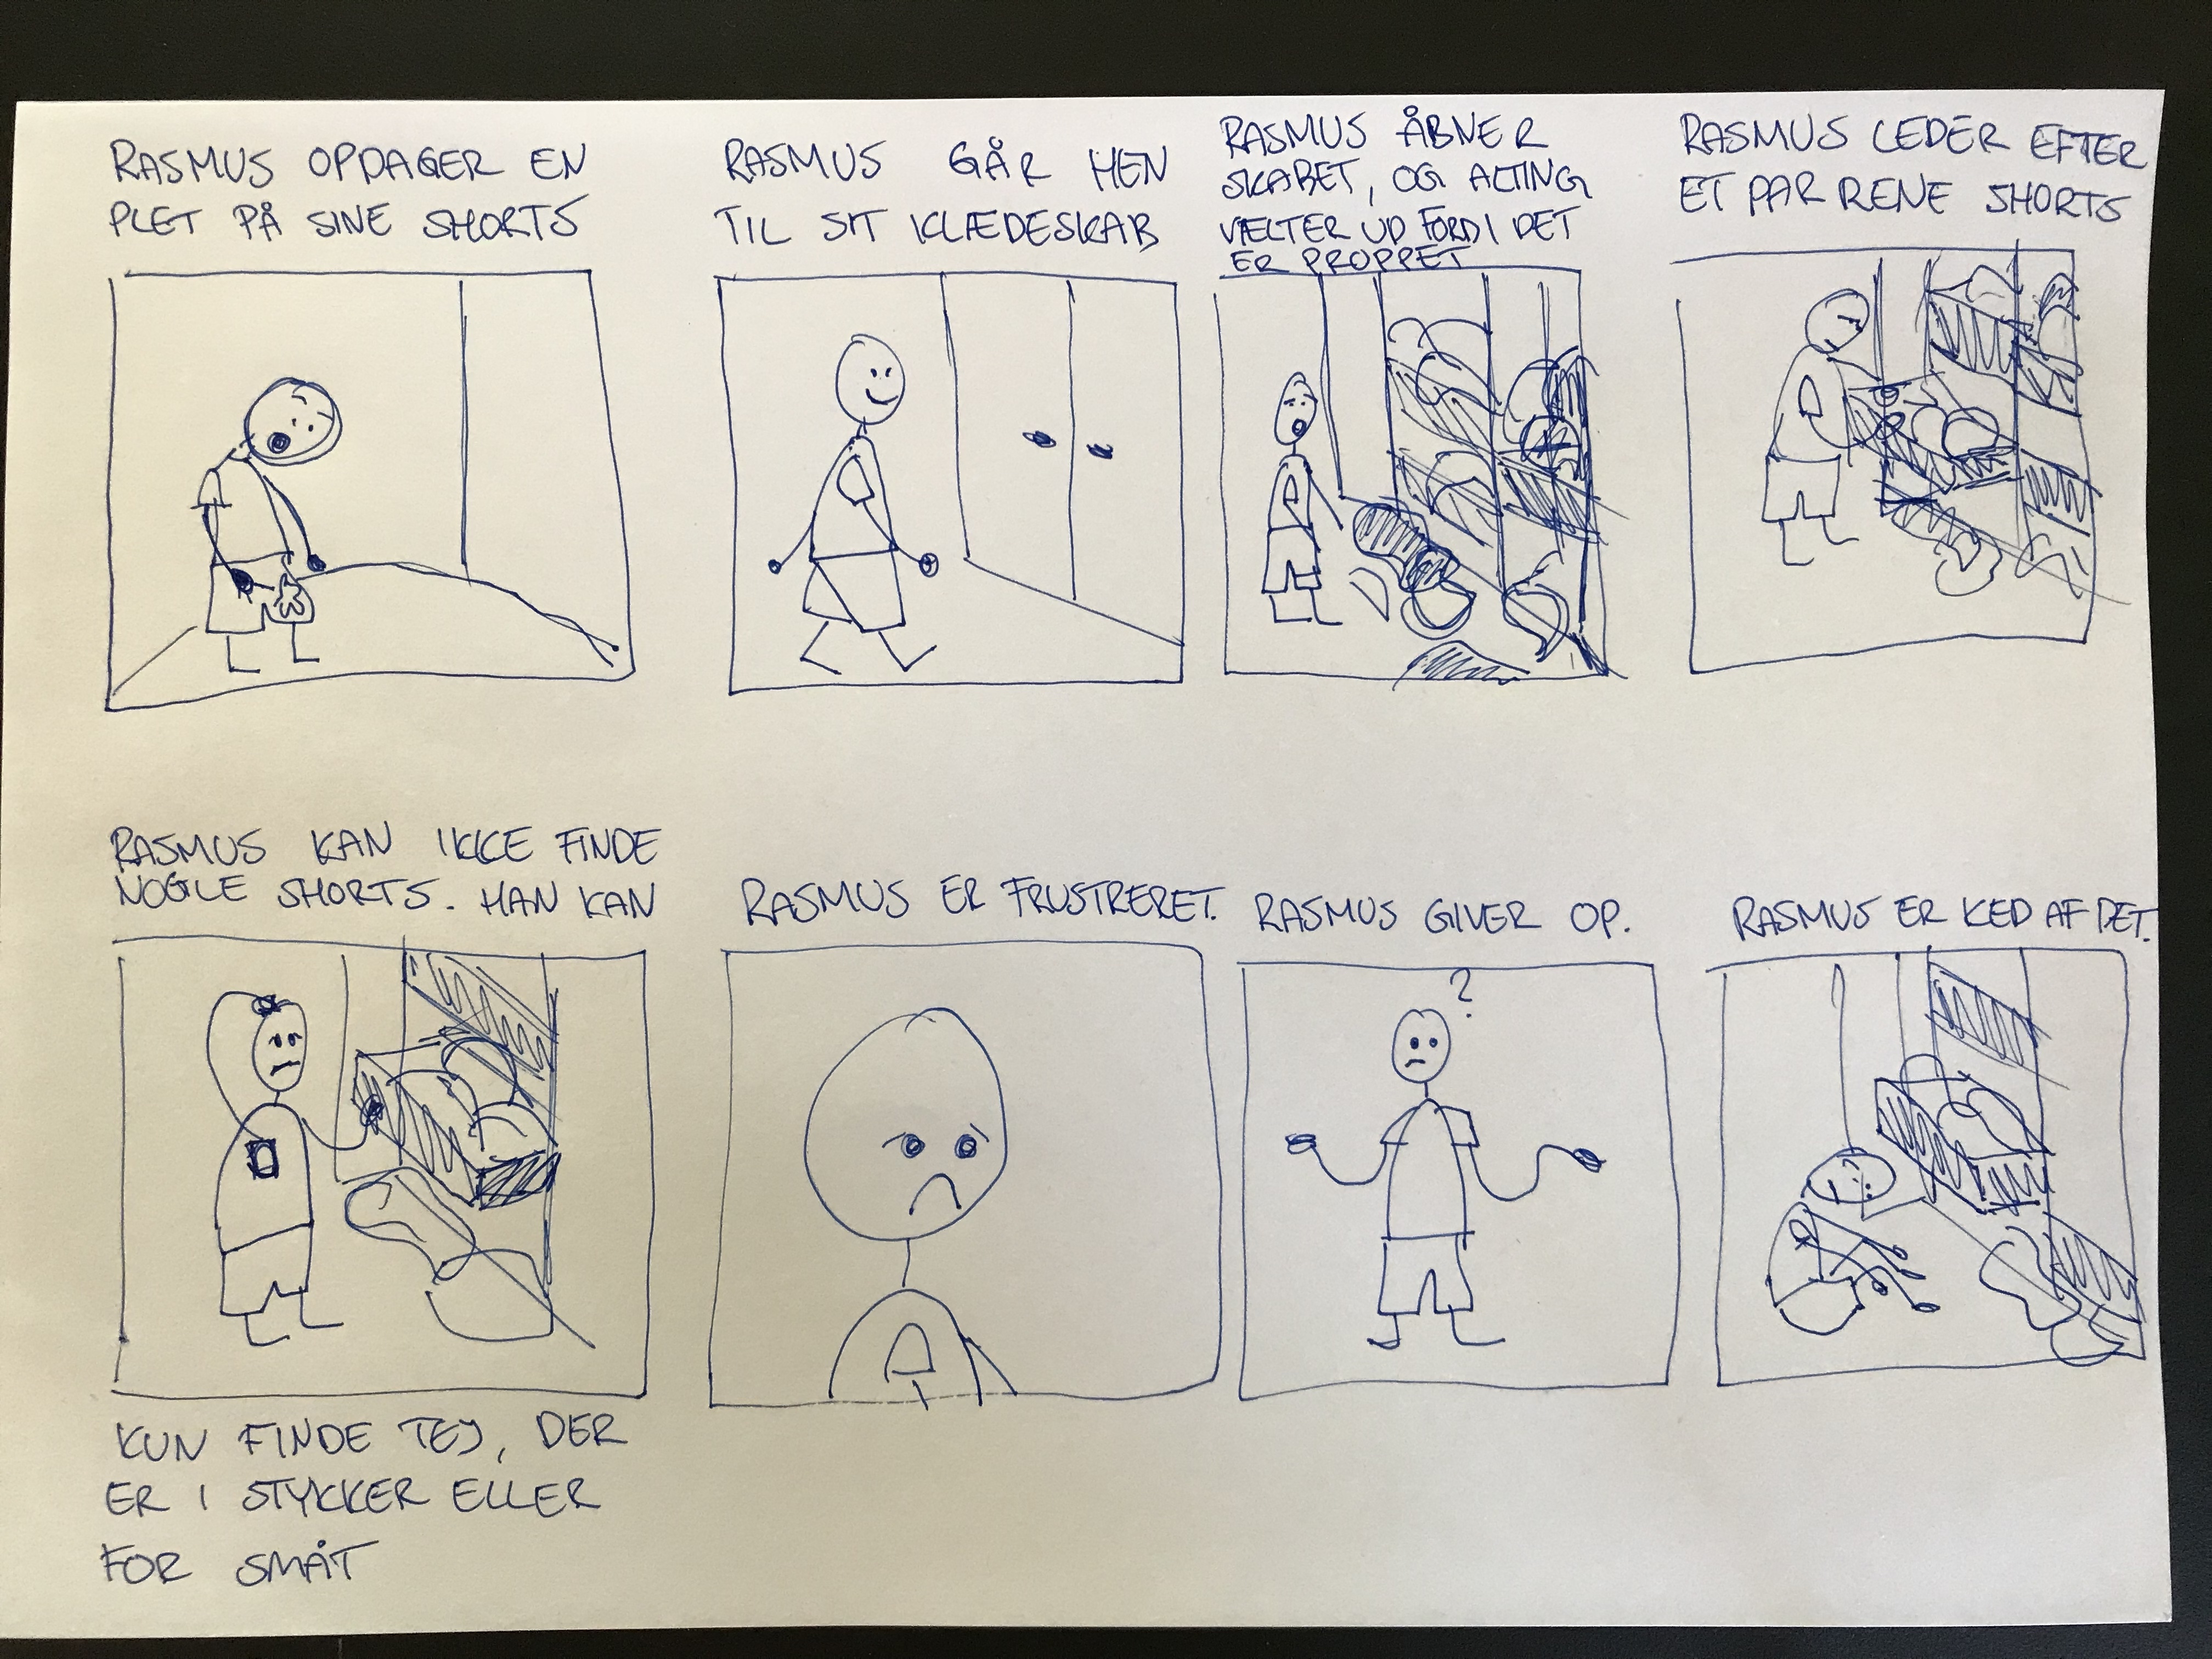 RASMUS OPDAGER EN
PLET PÅ SINE SHORTS
RASMUS GÅR HEN
TIL SIT KLÆDESKAB
RASMUS ÅBNER
SKABET, OG ALTING
VÆLTER UD FORDI DET
ER PROPPET
RASMUS LEDER EFTER
ET PAR RENE SHORTS
RASMUS KAN IKKE FINDE
NOGLE SHORTS. HAN KAN
KUN FINDE TØJ, DER
ER I STYKKER ELLER
FOR SMÅT
RASMUS ER FRUSTRERET.
RASMUS GIVER OP.
?
RASMUS ER KED AF DET.